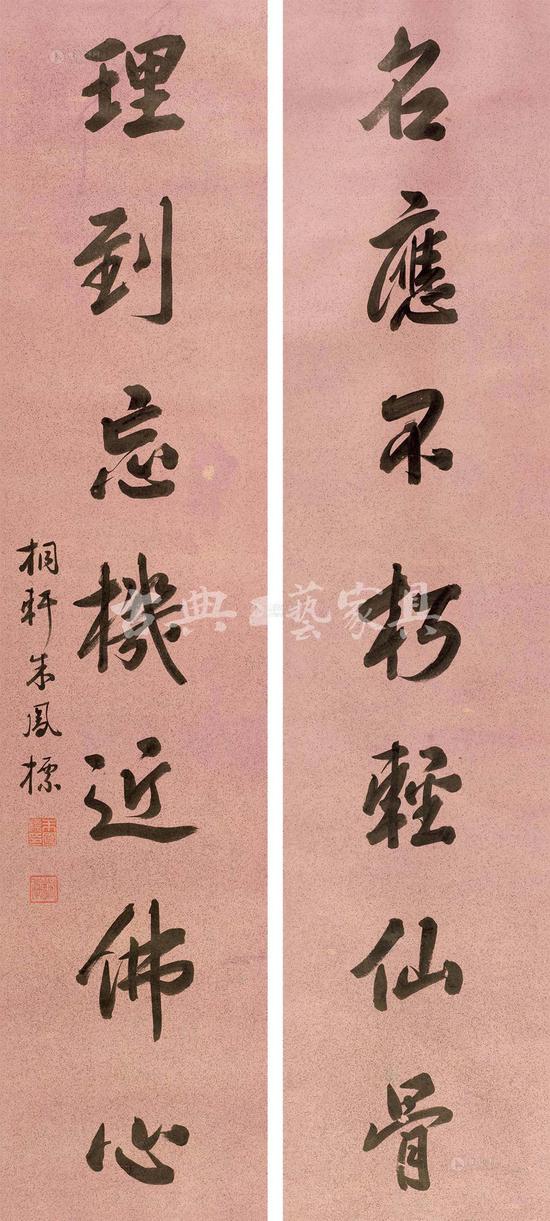 名應不朽輕仙骨
理到忘機近佛心
桐軒朱鳳標
典藝家具